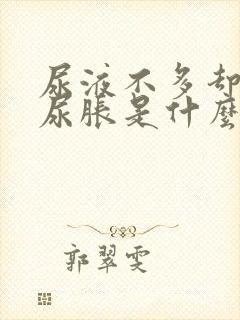 尿液不多却
尿胀是什麼
郭翠雯